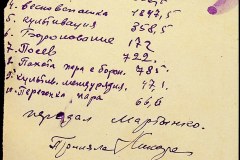 4. Весновспашка 1847,5
5. Культивация 358,5
6. Боронование 172
7. Посев 722.
8. Пахота пара с борон. 785
9. Культив. междурядия. 471.
10. Перепашка пара 66,0
передал Мартынко.
Приняла